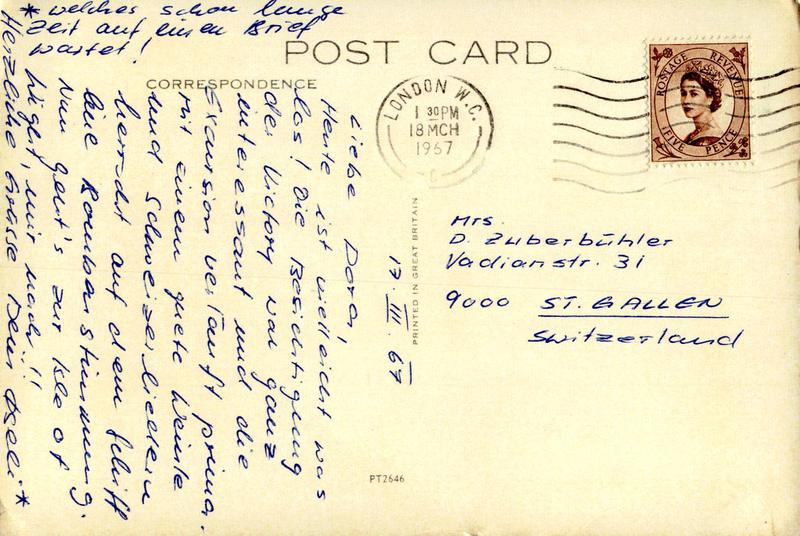 POST CARD
CORRESPONDENCE
Liebe Dora,
Heute ist vielleicht was
los! Die Besichtigung
der Victory war ganz
interessant und die
Excursion verläuft prima.
Mit einem guete Weinle
und Schweizerliedlein
herrscht auf dem Schiff
eine Bombenstimmung.
Nun geht's zur Isle of
Wight, mir nach!!
Herzliche Grüsse *
* welches schon lange
Zeit auf einen Brief
wartet!
17. III. 67
PRINTED IN GREAT BRITAIN
PT2646
LONDON W.C.
1 30 PM
18 MCH
1967
POSTAGE REVENUE
FIVE PENCE
Mrs.
D. Zuberbühler
Vadianstr. 31
9000 ST. GALLEN
Switzerland